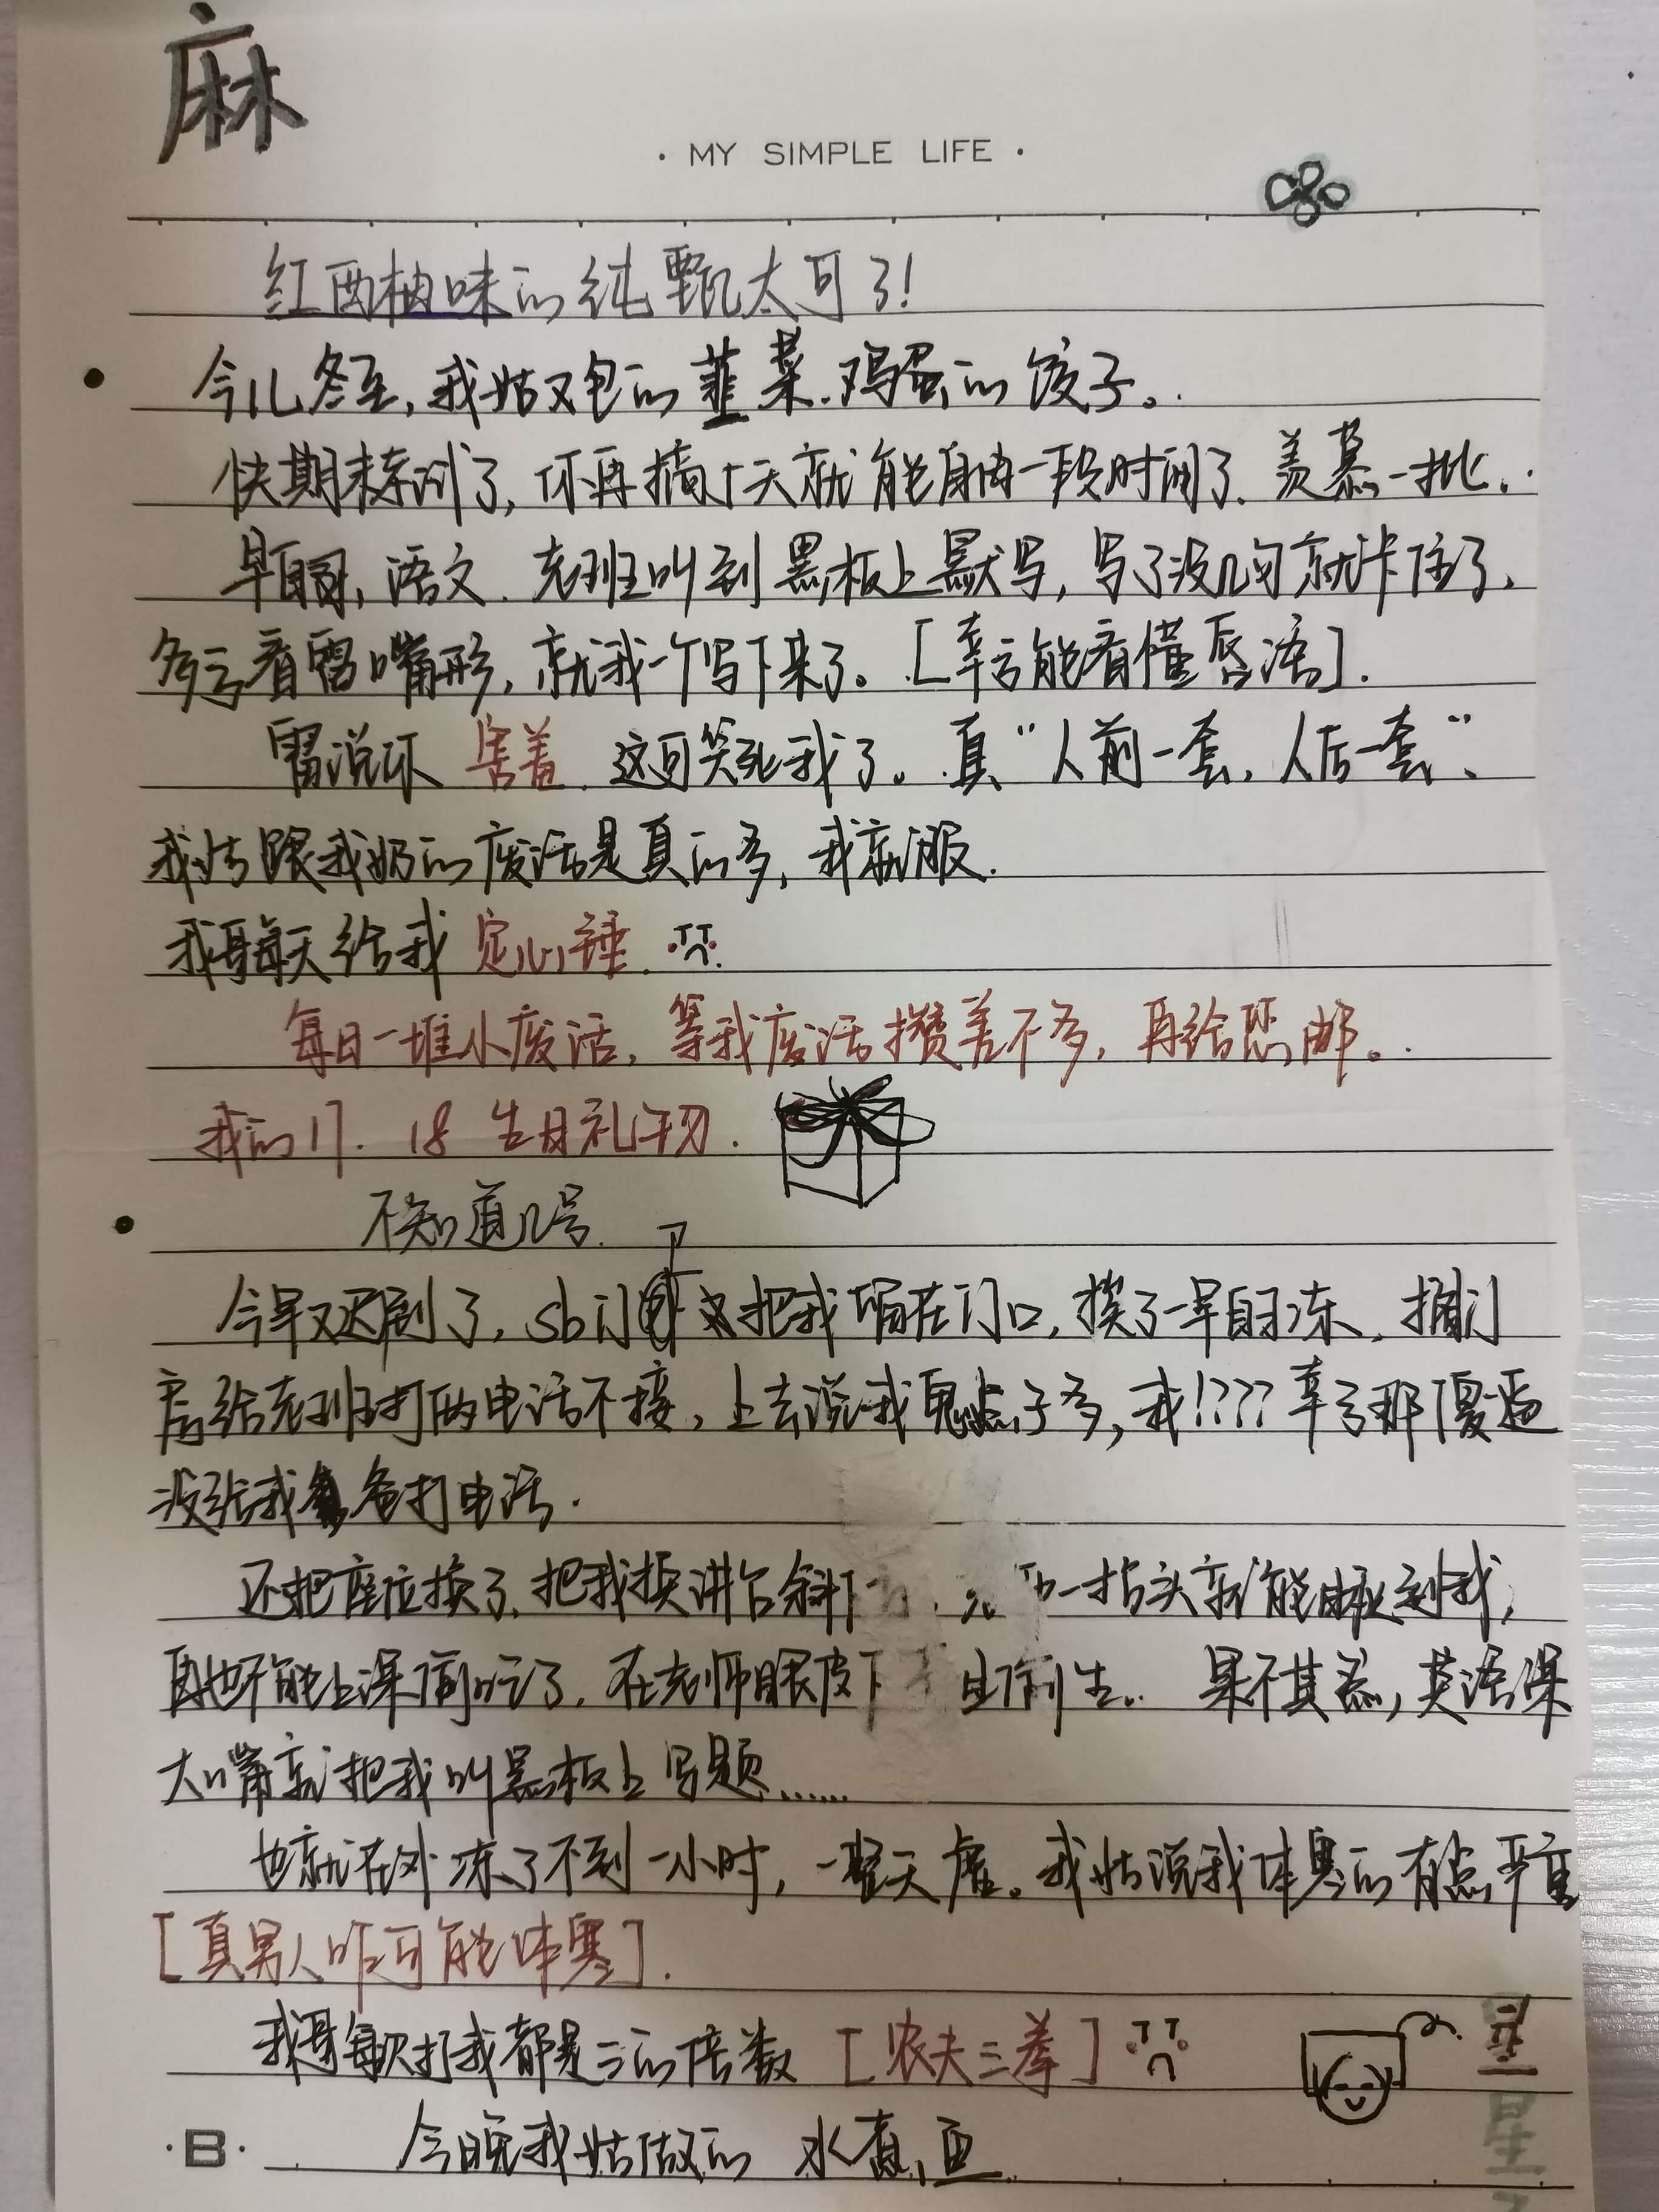 麻
· MY SIMPLE LIFE ·
红西柚味的纯甄太可了!
今儿冬至,我姑又包的韭菜.鸡蛋的饺子。
快期末考试了,你再搞个天就能自由一段时间了.羡慕一批.
早自习,语文.老班叫到黑板上默写,写了没几句就卡住了,
多亏看雷嘴形,就我一个写下来了。[幸亏能看懂唇语].
雷说你 害羞.这可笑死我了。真“人前一套,人后一套”、
我姑跟我奶的废话是真的多,我就服.
我哥每天给我 定心锤.
每日一堆小废话,等我废话攒差不多,再给您邮。
我的17.18 生日礼物.
不知道几号.
今早又迟到了,sb门 把我堵在门口,挨了一早自习冻.搁门
房给老班打的电话不接,上去说我鬼点子多,我!???幸亏那傻逼
没给我爸打电话.
还把座位换了.把我换讲台斜 一指头就能 到我,
再也不能上课偷吃了.在老师眼皮下 果不其然,英语课
大嘴就把我叫黑板上写题......
也就在外冻了不到一小时,一整天虚。我姑说我体寒的有点严重
[真男人咋可能体寒].
我哥每次打我都是三的倍数 [农夫三拳]
星
星
·B· 今晚我姑做的 水煮鱼.